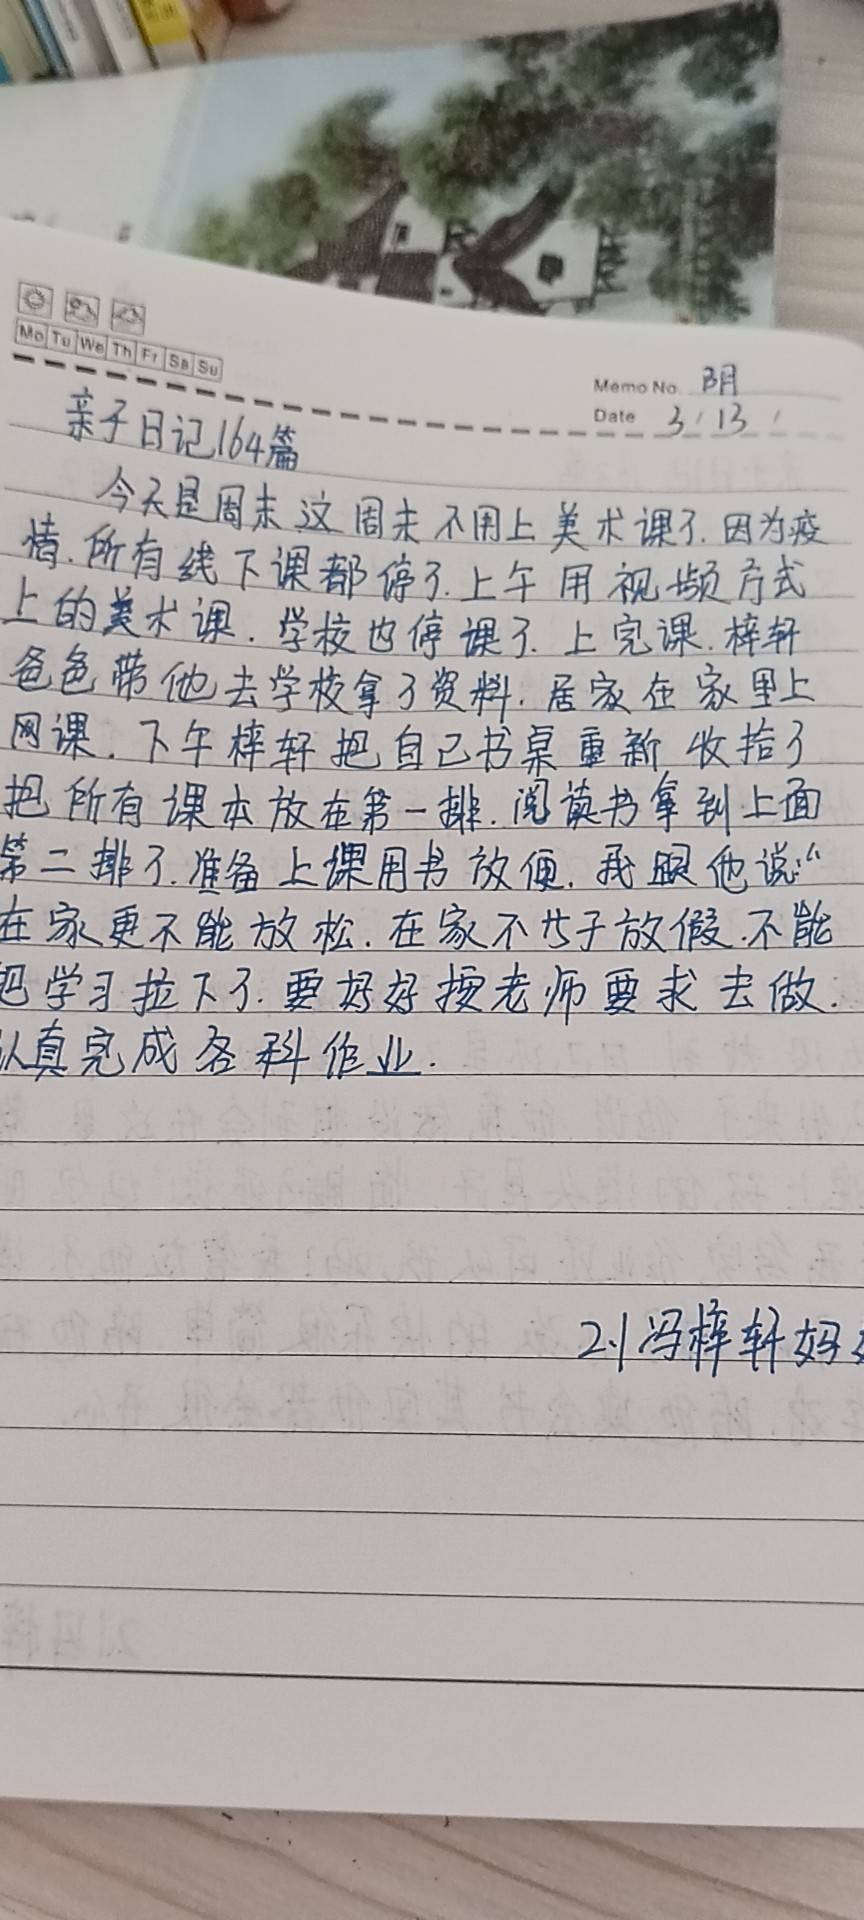 Mo Tu We Th Fr Sa Su
Memo No. 阴
Date 3 / 13 /
亲子日记164篇
今天是周末.这周末不用上美术课了.因为疫
情.所有线下课都停了.上午用视频方式
上的美术课.学校也停课了.上完课.梓轩
爸爸带他去学校拿了资料.居家在家里上
网课.下午梓轩把自己书桌重新收拾了
把所有课本放在第一排.阅读书拿到上面
第二排了.准备上课用书放便.我跟他说:“
在家更不能放松.在家不于放假.不能
把学习拉下了.要好好按老师要求去做.
认真完成各科作业.
2.1冯梓轩妈